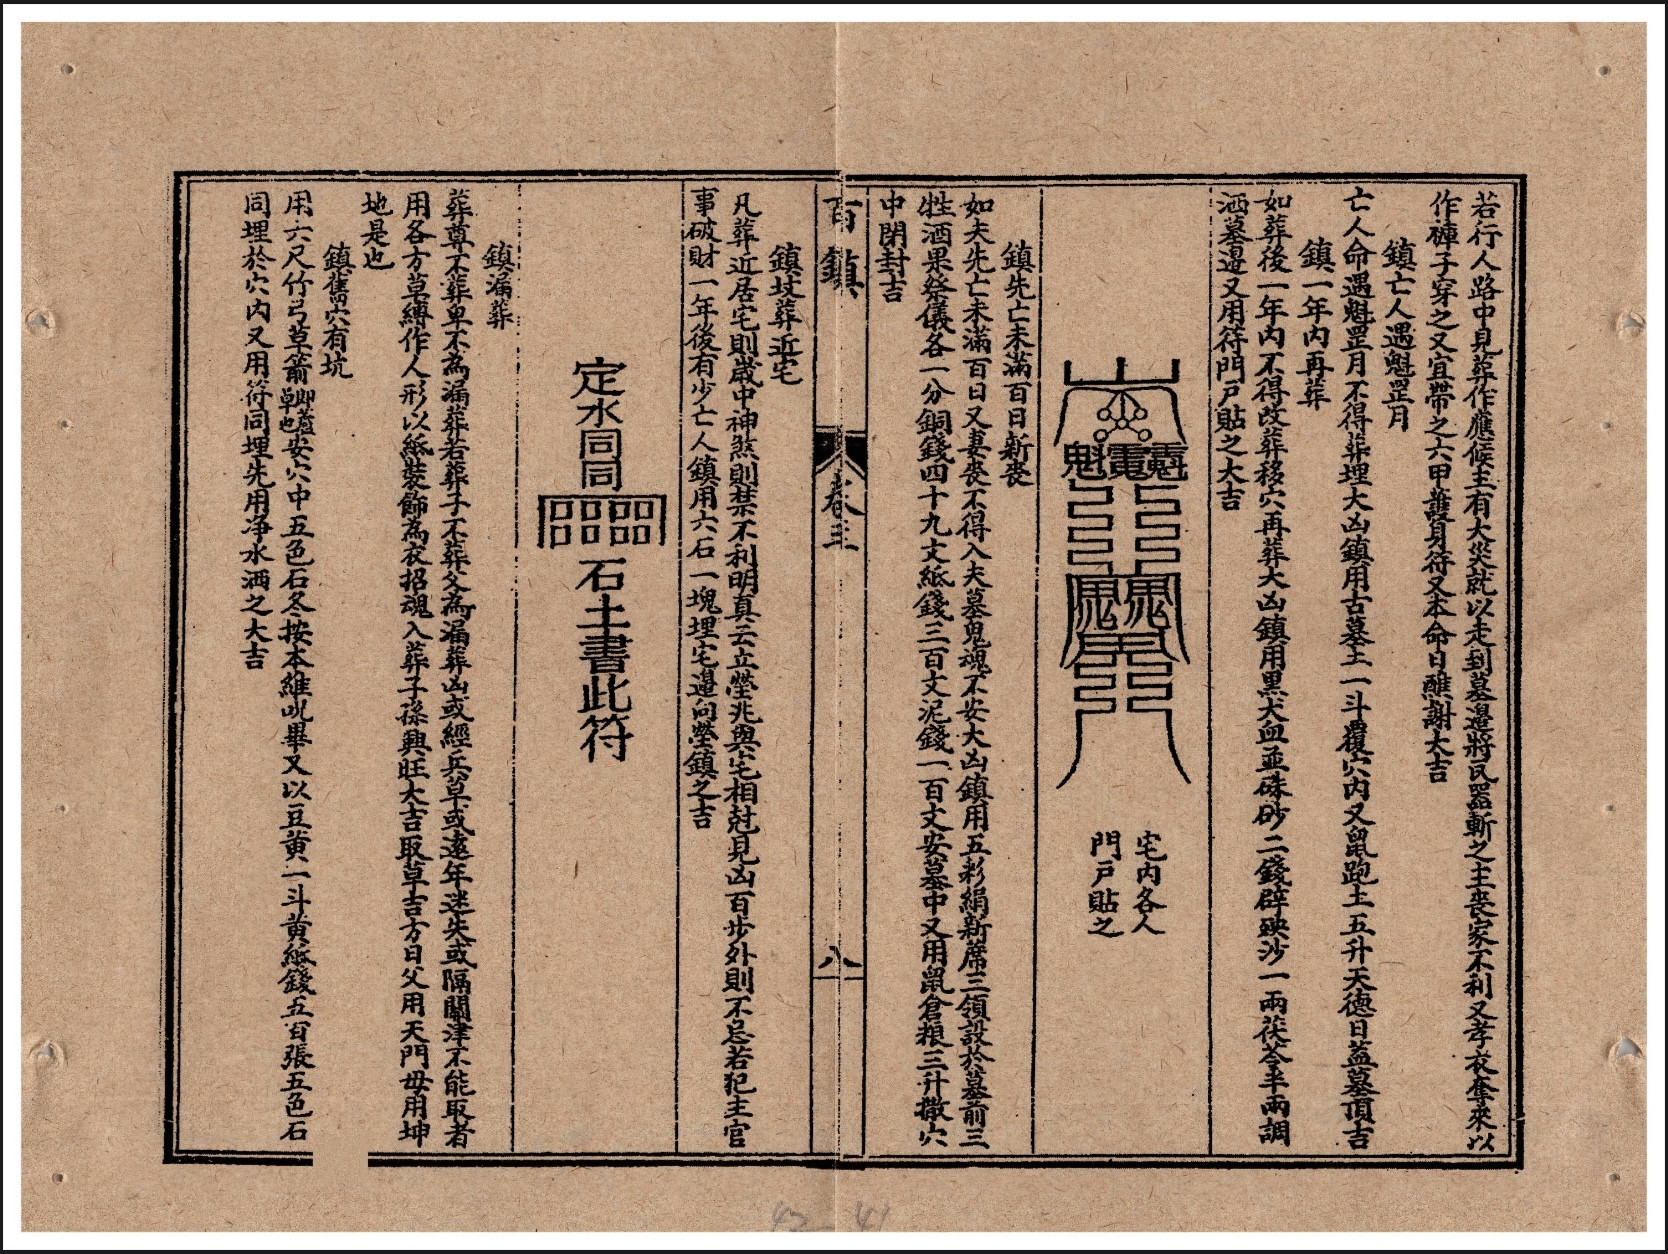 若行人路中見葬作應候主有大災就以走到墓邉將瓦器斬之主喪家不利又孝衣奪來以
作褲子穿之又宜帶之六甲護身符又本命日醮謝大吉
鎮亡人遇魁罡月
亡人命遇魁罡月不得葬埋大凶鎮用古墓土一斗覆穴内又鼠跑土五升天德日蓋墓頂吉
鎮一年内再葬
如葬後一年内不得改葬移穴再葬大凶鎮用黒犬血並硃砂二錢辟殃沙一兩茯苓半兩調
洒墓邉又用符門戸貼之大吉
宅内各人
門戸貼之
鎮先亡未滿百日新喪
如夫先亡未滿百日又妻喪不得入夫墓鬼魂不安大凶鎮用五彩絹新蓆三領設於墓前三
牲酒果祭儀各一分銅錢四十九文紙錢三百文泥錢一百文安墓中又用鼠倉粮三升撒穴
中閉封吉
百鎮
卷三
八
鎮坟葬近宅
凡葬近居宅則歲中神煞則禁不利明真云立塋兆與宅相尅見凶百步外則不忌若犯主官
事破財一年後有少亡人鎮用六石一塊埋宅邉向塋鎮之吉
定水同同
石土書此符
鎮漏葬
葬尊不葬卑不為漏葬若葬子不葬父為漏葬凶或經兵草或遠年迷失或隔關津不能取者
用各方草縛作人形以紙裝飾為衣招魂入葬子孫興旺大吉取草吉方日父用天門毋用坤
地是也
鎮舊穴有坑
用六尺竹弓草箭即蘆草也安穴中五色石冬按本維吮畢又以豆黄一斗黄紙錢五百張五色石
同埋於穴内又用符同埋先用净水洒之大吉